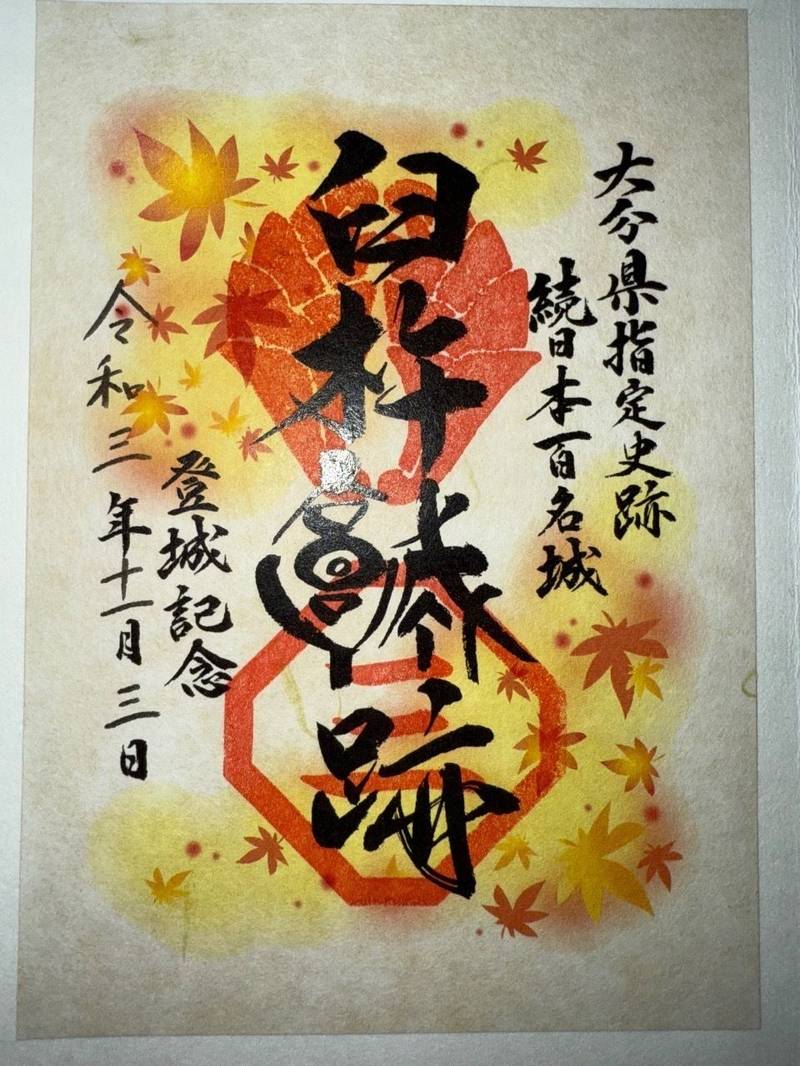 大分県指定史跡
続日本百名城
臼杵城跡
登城記念
令和三年十一月三日